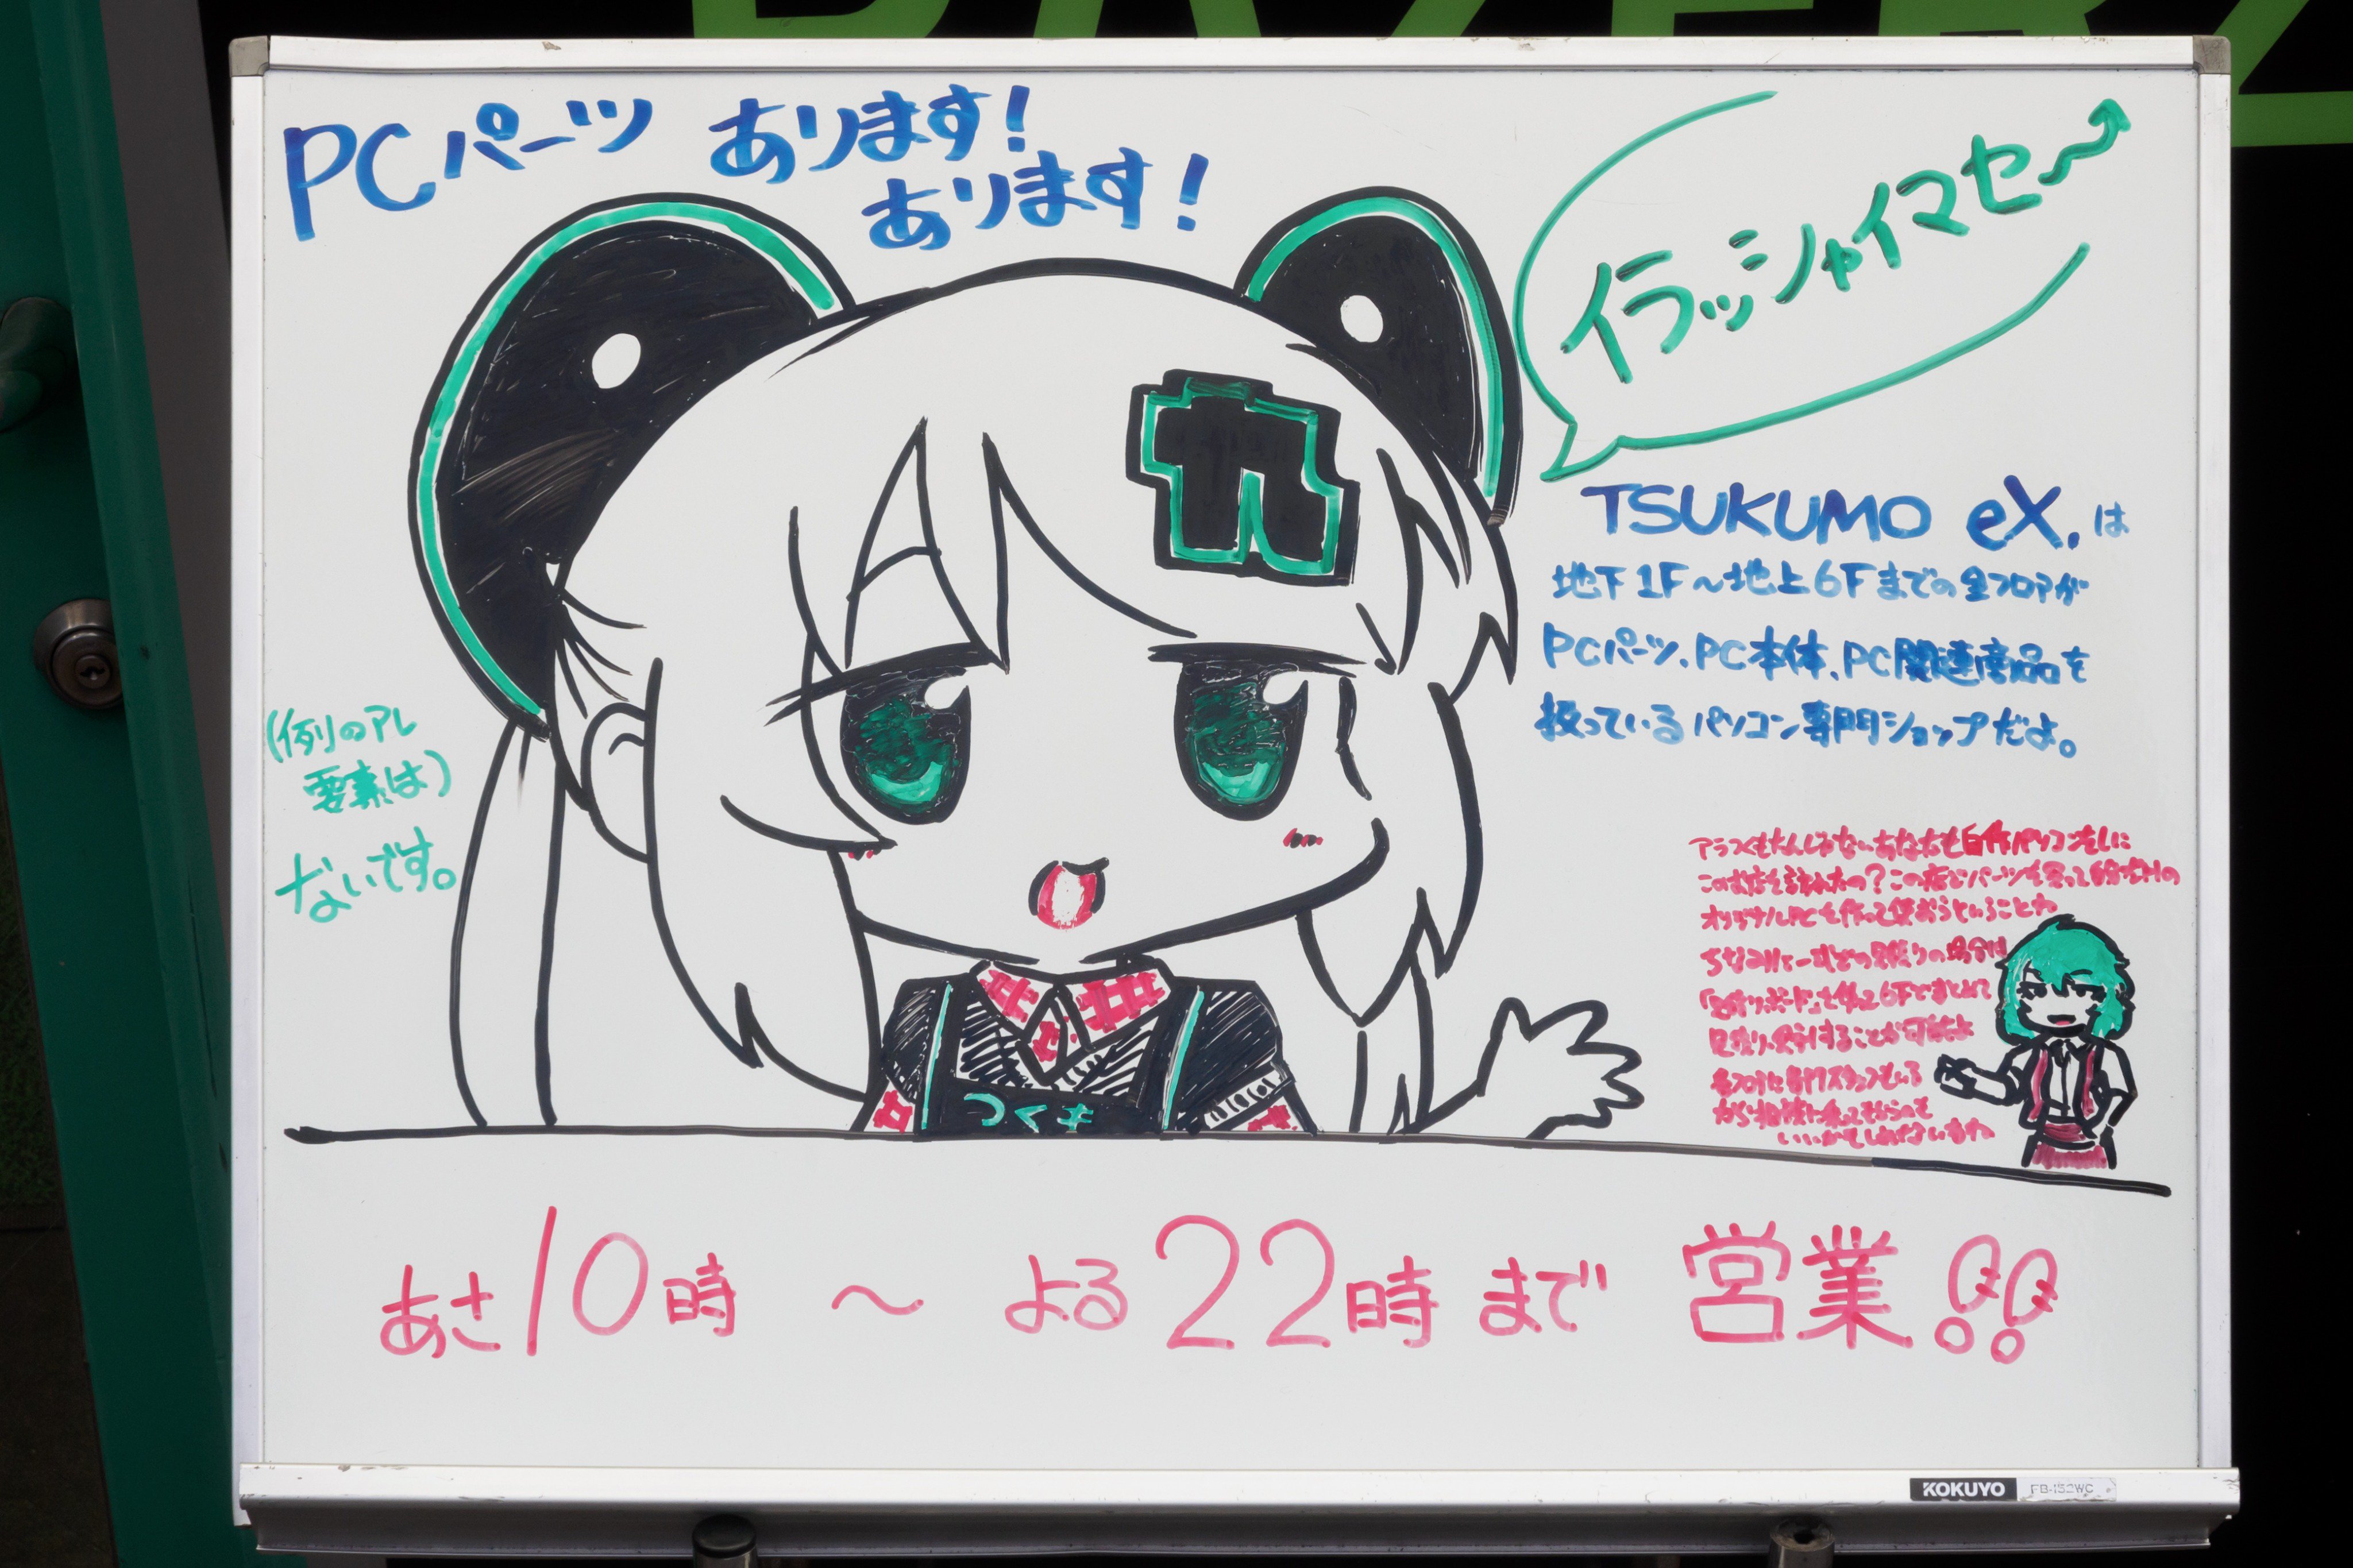 PCパーツ あります!
あります!
イラッシャイマセ〜
TSUKUMO eX.は
地下1F〜地上6Fまでの全フロアが
PCパーツ、PC本体、PC関連商品を
扱っているパソコン専門ショップだよ。
(例のアレ
要素は)
ないです。
アラつくもたんじゃない あなたも自作パソコンをしに
このお店を訪れたの?この店でパーツを買って自分だけの
オリジナルPCを作って使おうということね
ちなみに一式での見積りの場合は
を使って6Fでまとめて
見積り、会計することが可能よ
各フロアに専門スタッフもいる
から相談に乗ってもらっても
いいかもしれないわね
つくも
あさ10時 〜 よる22時まで 営業!!
KOKUYO FB-152WC